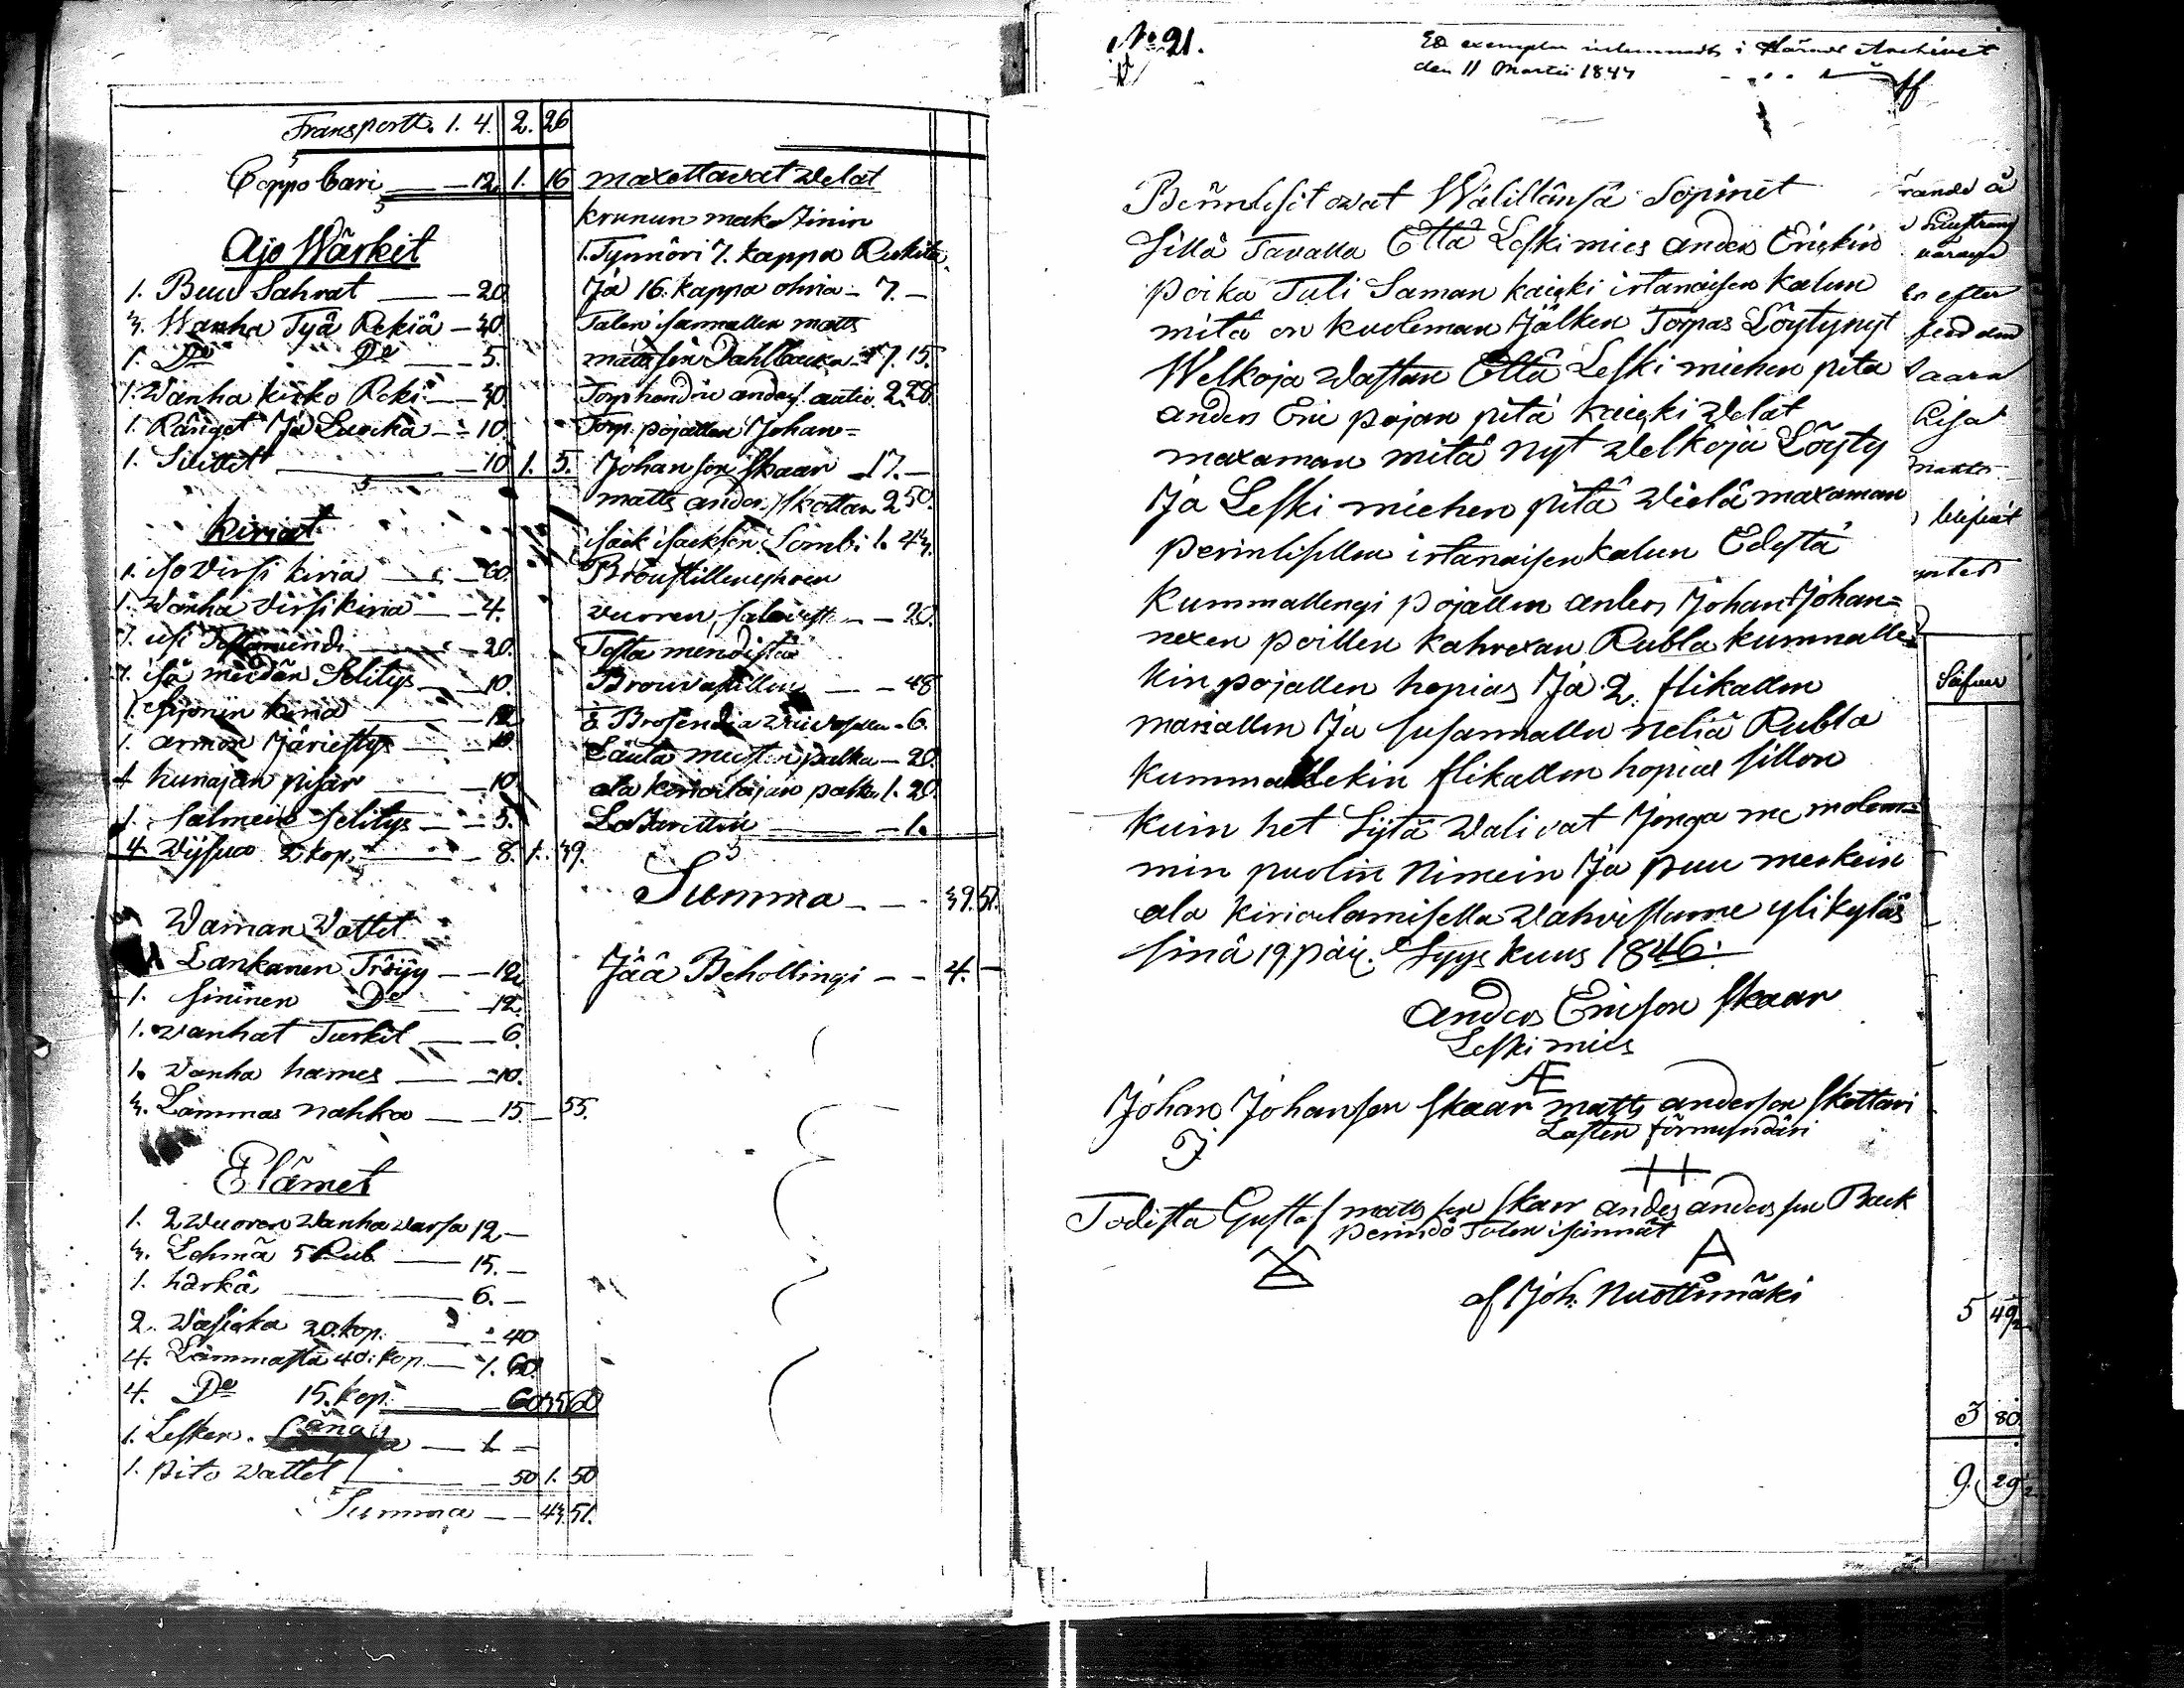 Transportt. 1. 4. 2. 26
Coppo Cari — 12 1. 16
Ajo Wärkit
1. Buu Sahrat — 20
3. Wanha Tyä Rekiä — 30
1. Do Do — 5.
1. Wanha kirko Reki — 30
1. Ränget Ja Luocka — 10.
1. Suittet — 10 1. 5.
kiriat
1. iso Virsi kiria — 60.
1. Wanha Virsi kiria — 4.
1. usi Testamendi — 20.
1. isä meidän Selitys — 10.
1. Sijonin kiria — 12
1. armon Järiestys — 10.
1 hunajan pisar — 10
1. Salmein selitys — 5.
4. Wijsuco 2 kop. — 8. 1. 39.
Waman Vattet
1. Lankanen Tröijy — 12
1. sininen Do — 12.
1. wanhat Turkit — 6.
1. Vanha hames — 10.
3. Lammas nahka — 15. — 55.
Elämet
1. 2 Wuoren Wanha varsa 12 —
3. Lehmä 5 Rub — 15. —
1. härkä — 6. —
2. Wasicka 20. kop. — 40
4. Lammasta 40. kop. — 1. 60.
4. Do 15. kop. — 60 35 60
1. Lesken Sängy — 1 —
1. pito Vattet — 50 1. 50
Summa — 43. 51.
maxettavat Velat
krunun makatinin
1. Tynnöri 7. kappa Rukita
Ja 16. kappa ohria — 7. —
Talon isannallen matts
matssin Dahlbacka — 7. 15.
Torp hendric anders. autio 2. 28.
Torp. pojallen Johan=
Johan son Skaar — 17. —
matts anders. Skottar 2 50.
isack isackson Lombi 1. 43.
vuoren — 20.
Tosta mendista
Brouvastillen — 48
— 6.
Lauta mestarin palka — 20.
ala kirioittajan palka 1. 20.
Lasarettin — 1.
Summa — 39. 51.
Jää Behollingi — 4. —
No 21.
Ett exemplar inlemnadt i Härads Archivet
den 11 Martii 1847
Perinlisit ovat Wälillänsä Sopinet
Sillä Tavalla Että Leski mies anders Erickin
poika Tuli Saman kaicki irtanaisen kalun
mitä on kuoleman Jälken Torpas Löytynyt
Welkoja Vastan Että Leski miehen pita
anders Eric pojan pitä kaicki Velat
maxaman mitä nyt Velkoja Löyty
Ja Leski miehen pitä Vielä maxaman
perinlisillen irtanaisen kalun Edestä
kummallengi pojallen anders Johan Johan=
nexen poillen kahrexan Rubla kummalle
kin pojallen hopias Ja 2. flikallen
marjallen Ja Susannallen neliä Rubla
kummallekin flikallen hopias sillon
kuin het Sijtä Valivat Jonga me molem=
min puolin Nimein Ja puu merkein
ala kirioitamisella Vahvistame ylikyläs
Sinä 19 päiv. Syys kuus 1846.
Anders Ericson Skaar
Leski mies
AE
Johan Johanson Skaar matts anderson Skottari
Lasten förmyndäri
J
Todista Gustaf matts son Skaar anders anders son Back
perindö Talon isännät
A
af Joh. Nuottimäki
rande
efter
Saara
Risat
Safwer
5 49
3 80
9 29